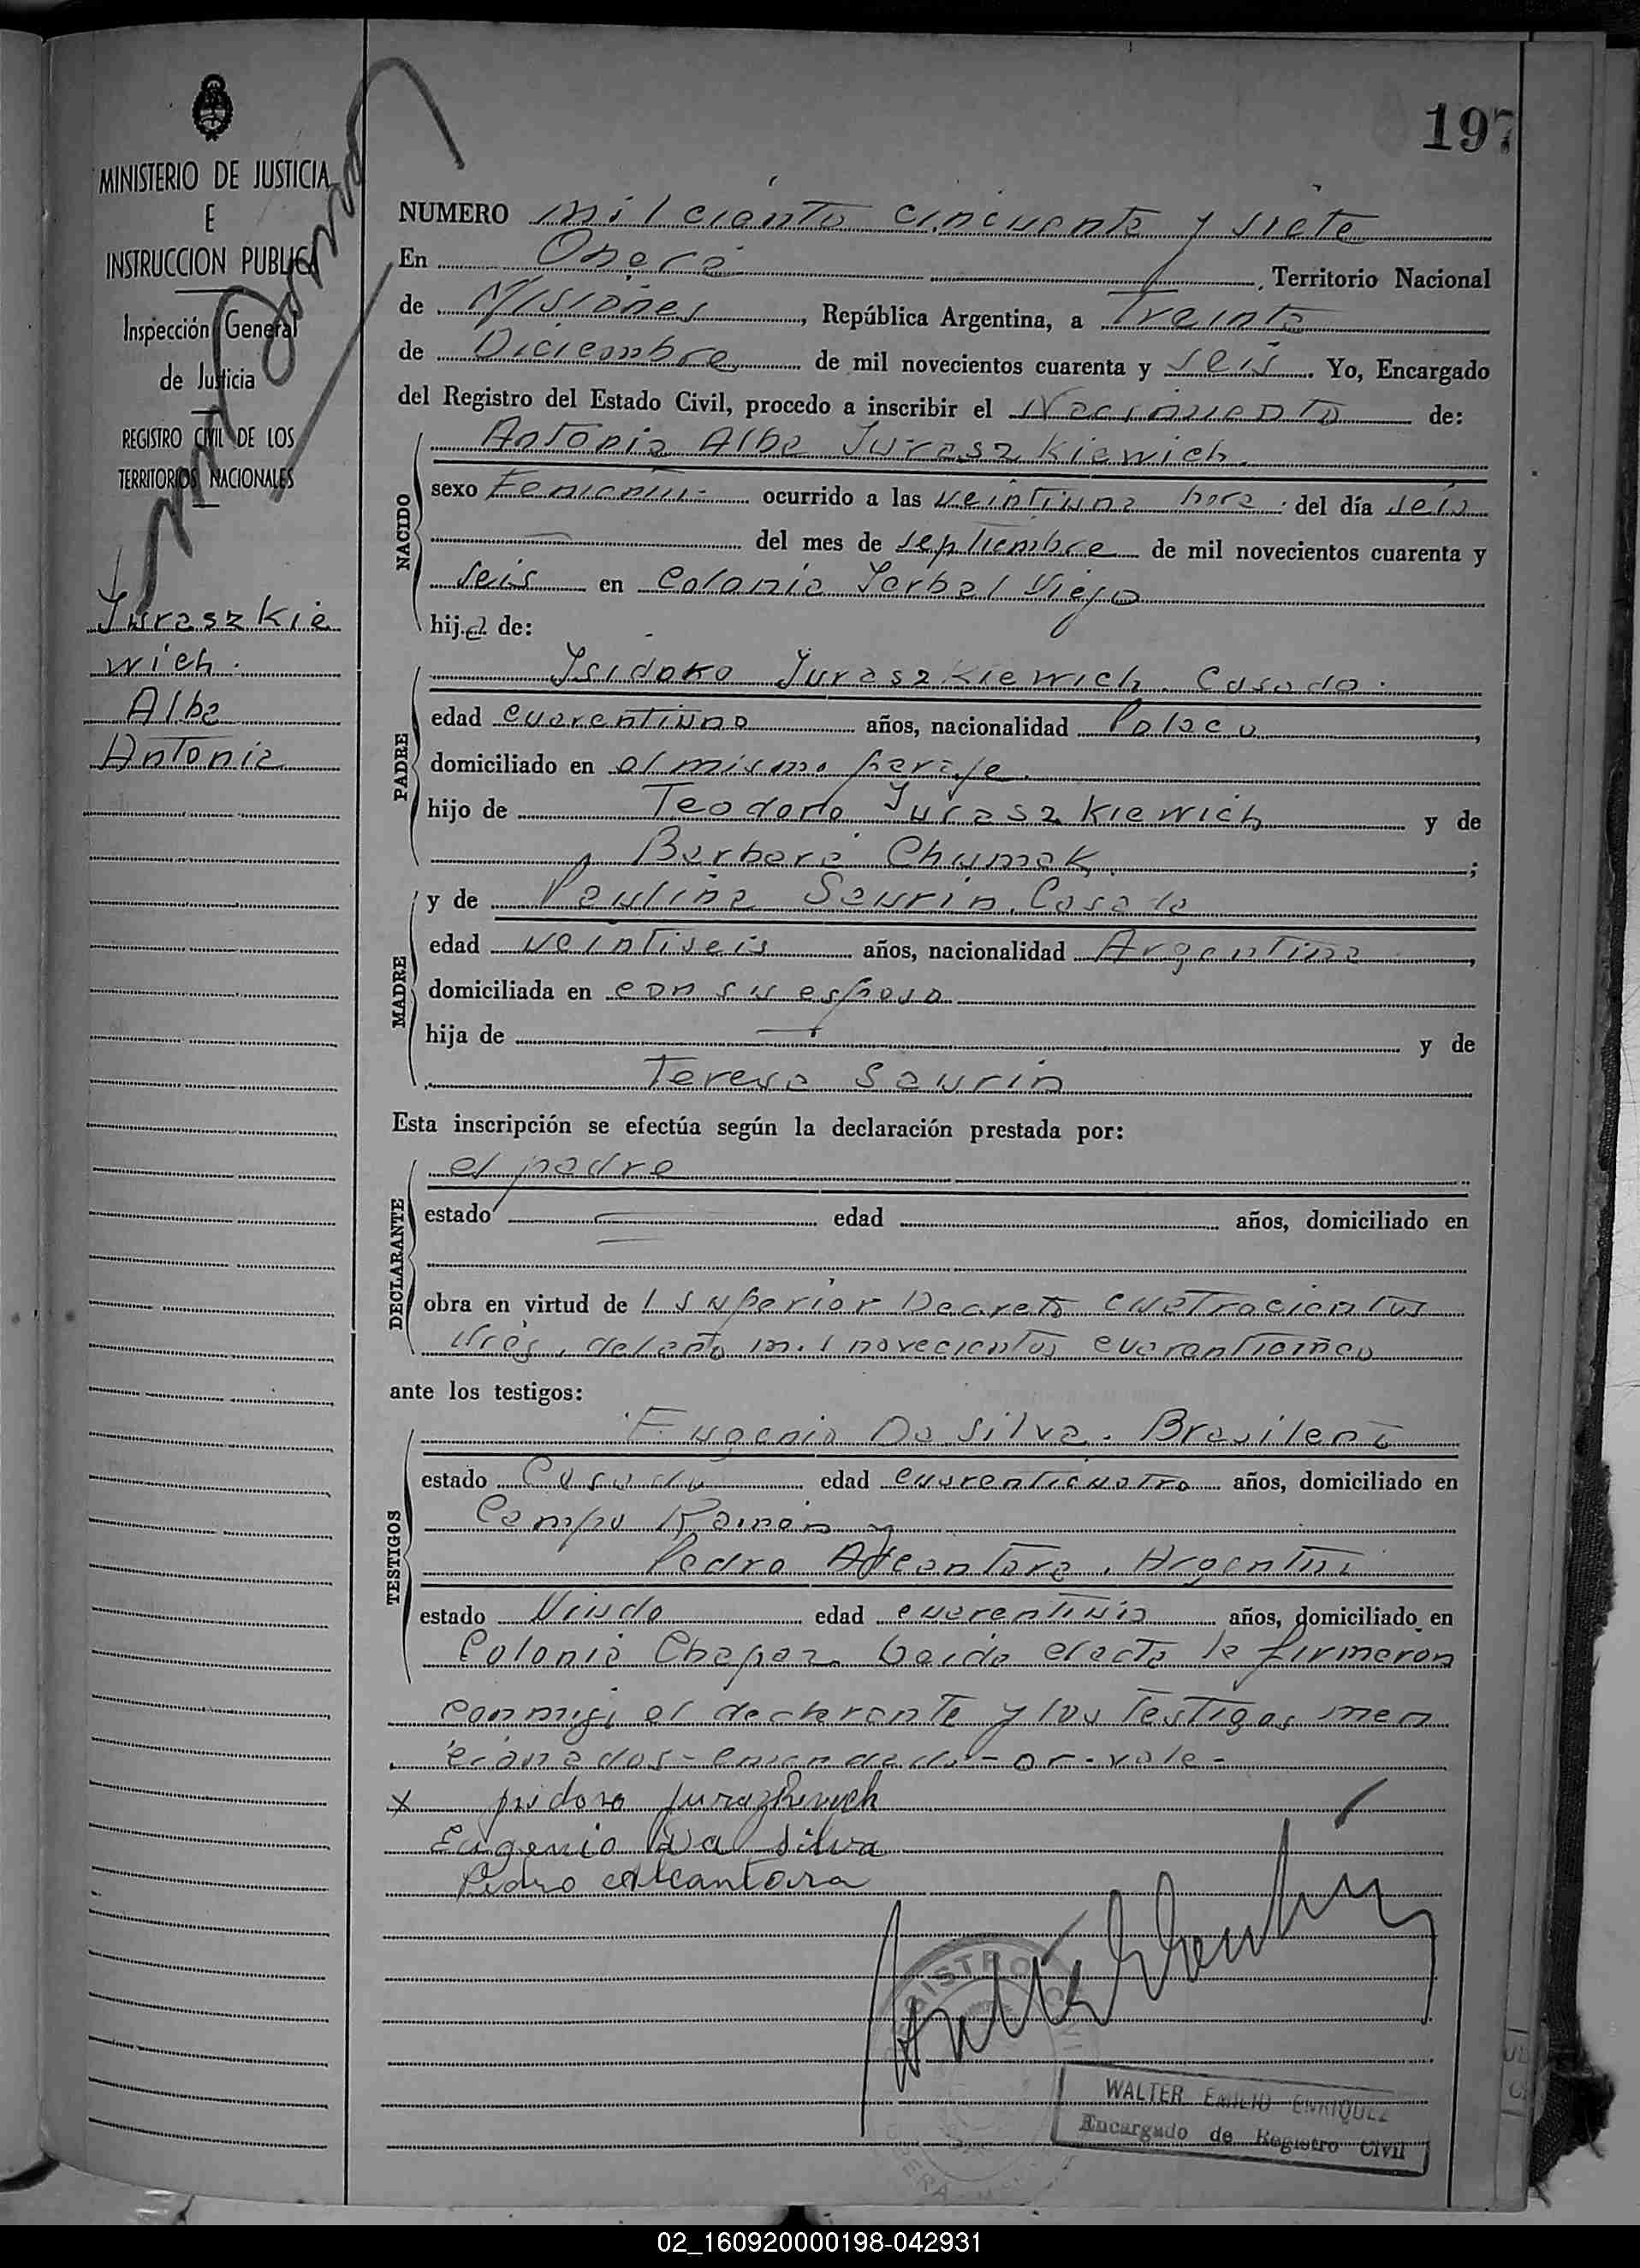 197
MINISTERIO DE JUSTICIA
E
INSTRUCCION PUBLICA
Inspección General
de Justicia
REGISTRO CIVIL DE LOS
TERRITORIOS NACIONALES
Juraszkie
wich.
Alba
Antonia
NUMERO mil ciento cincuenta y siete
En Oberá, Territorio Nacional
de Misiones, República Argentina, a Treinta
de Diciembre de mil novecientos cuarenta y seis. Yo, Encargado
del Registro del Estado Civil, procedo a inscribir el Nacimiento de:
NACIDO
Antonia Alba Juraszkiewich.
sexo Femenino ocurrido a las veintiuna hora del día seis
del mes de septiembre de mil novecientos cuarenta y
seis en Colonia Yerbal Viejo
hija de:
PADRE
Isidoro Juraszkiewich. Casado.
edad cuarentiuno años, nacionalidad Polaco,
domiciliado en el mismo paraje.
hijo de Teodoro Juraszkiewich y de
Barbara Chumak;
MADRE
y de Paulina Saurin. Casada
edad veintiseis años, nacionalidad Argentina,
domiciliada en con su esposo
hija de y de
Teresa Saurin
Esta inscripción se efectúa según la declaración prestada por:
DECLARANTE
el padre
estado edad años, domiciliado en
obra en virtud de l superior Decreto cuatrocientos
tres, del año mil novecientos cuarenticinco
ante los testigos:
TESTIGOS
Eugenio Da Silva. Brasileño
estado Casado edad cuarenticuatro años, domiciliado en
Campo Ramón y
Pedro Alcantara. Argentino
estado Viudo edad cuarentiuno años, domiciliado en
Colonia Chapaz. Leida el acta la firmaron
conmigo el declarante y los testigos men
cionados - enmendado - or - vale -
x Isidoro
Eugenio Da Silva
Pedro Alcantara
REGISTRO CIVIL
OBERA
WALTER EMILIO ENRIQUEZ
Encargado de Registro Civil
02_160920000198-042931